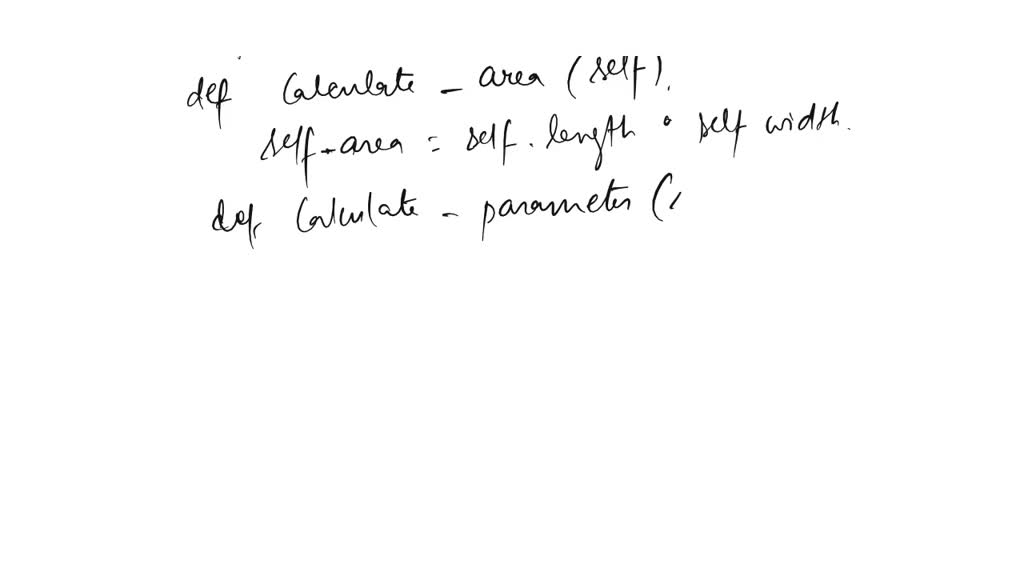 def Calculate_area (self).
self-area = self.length • self width.
def, Calculate - parameter (